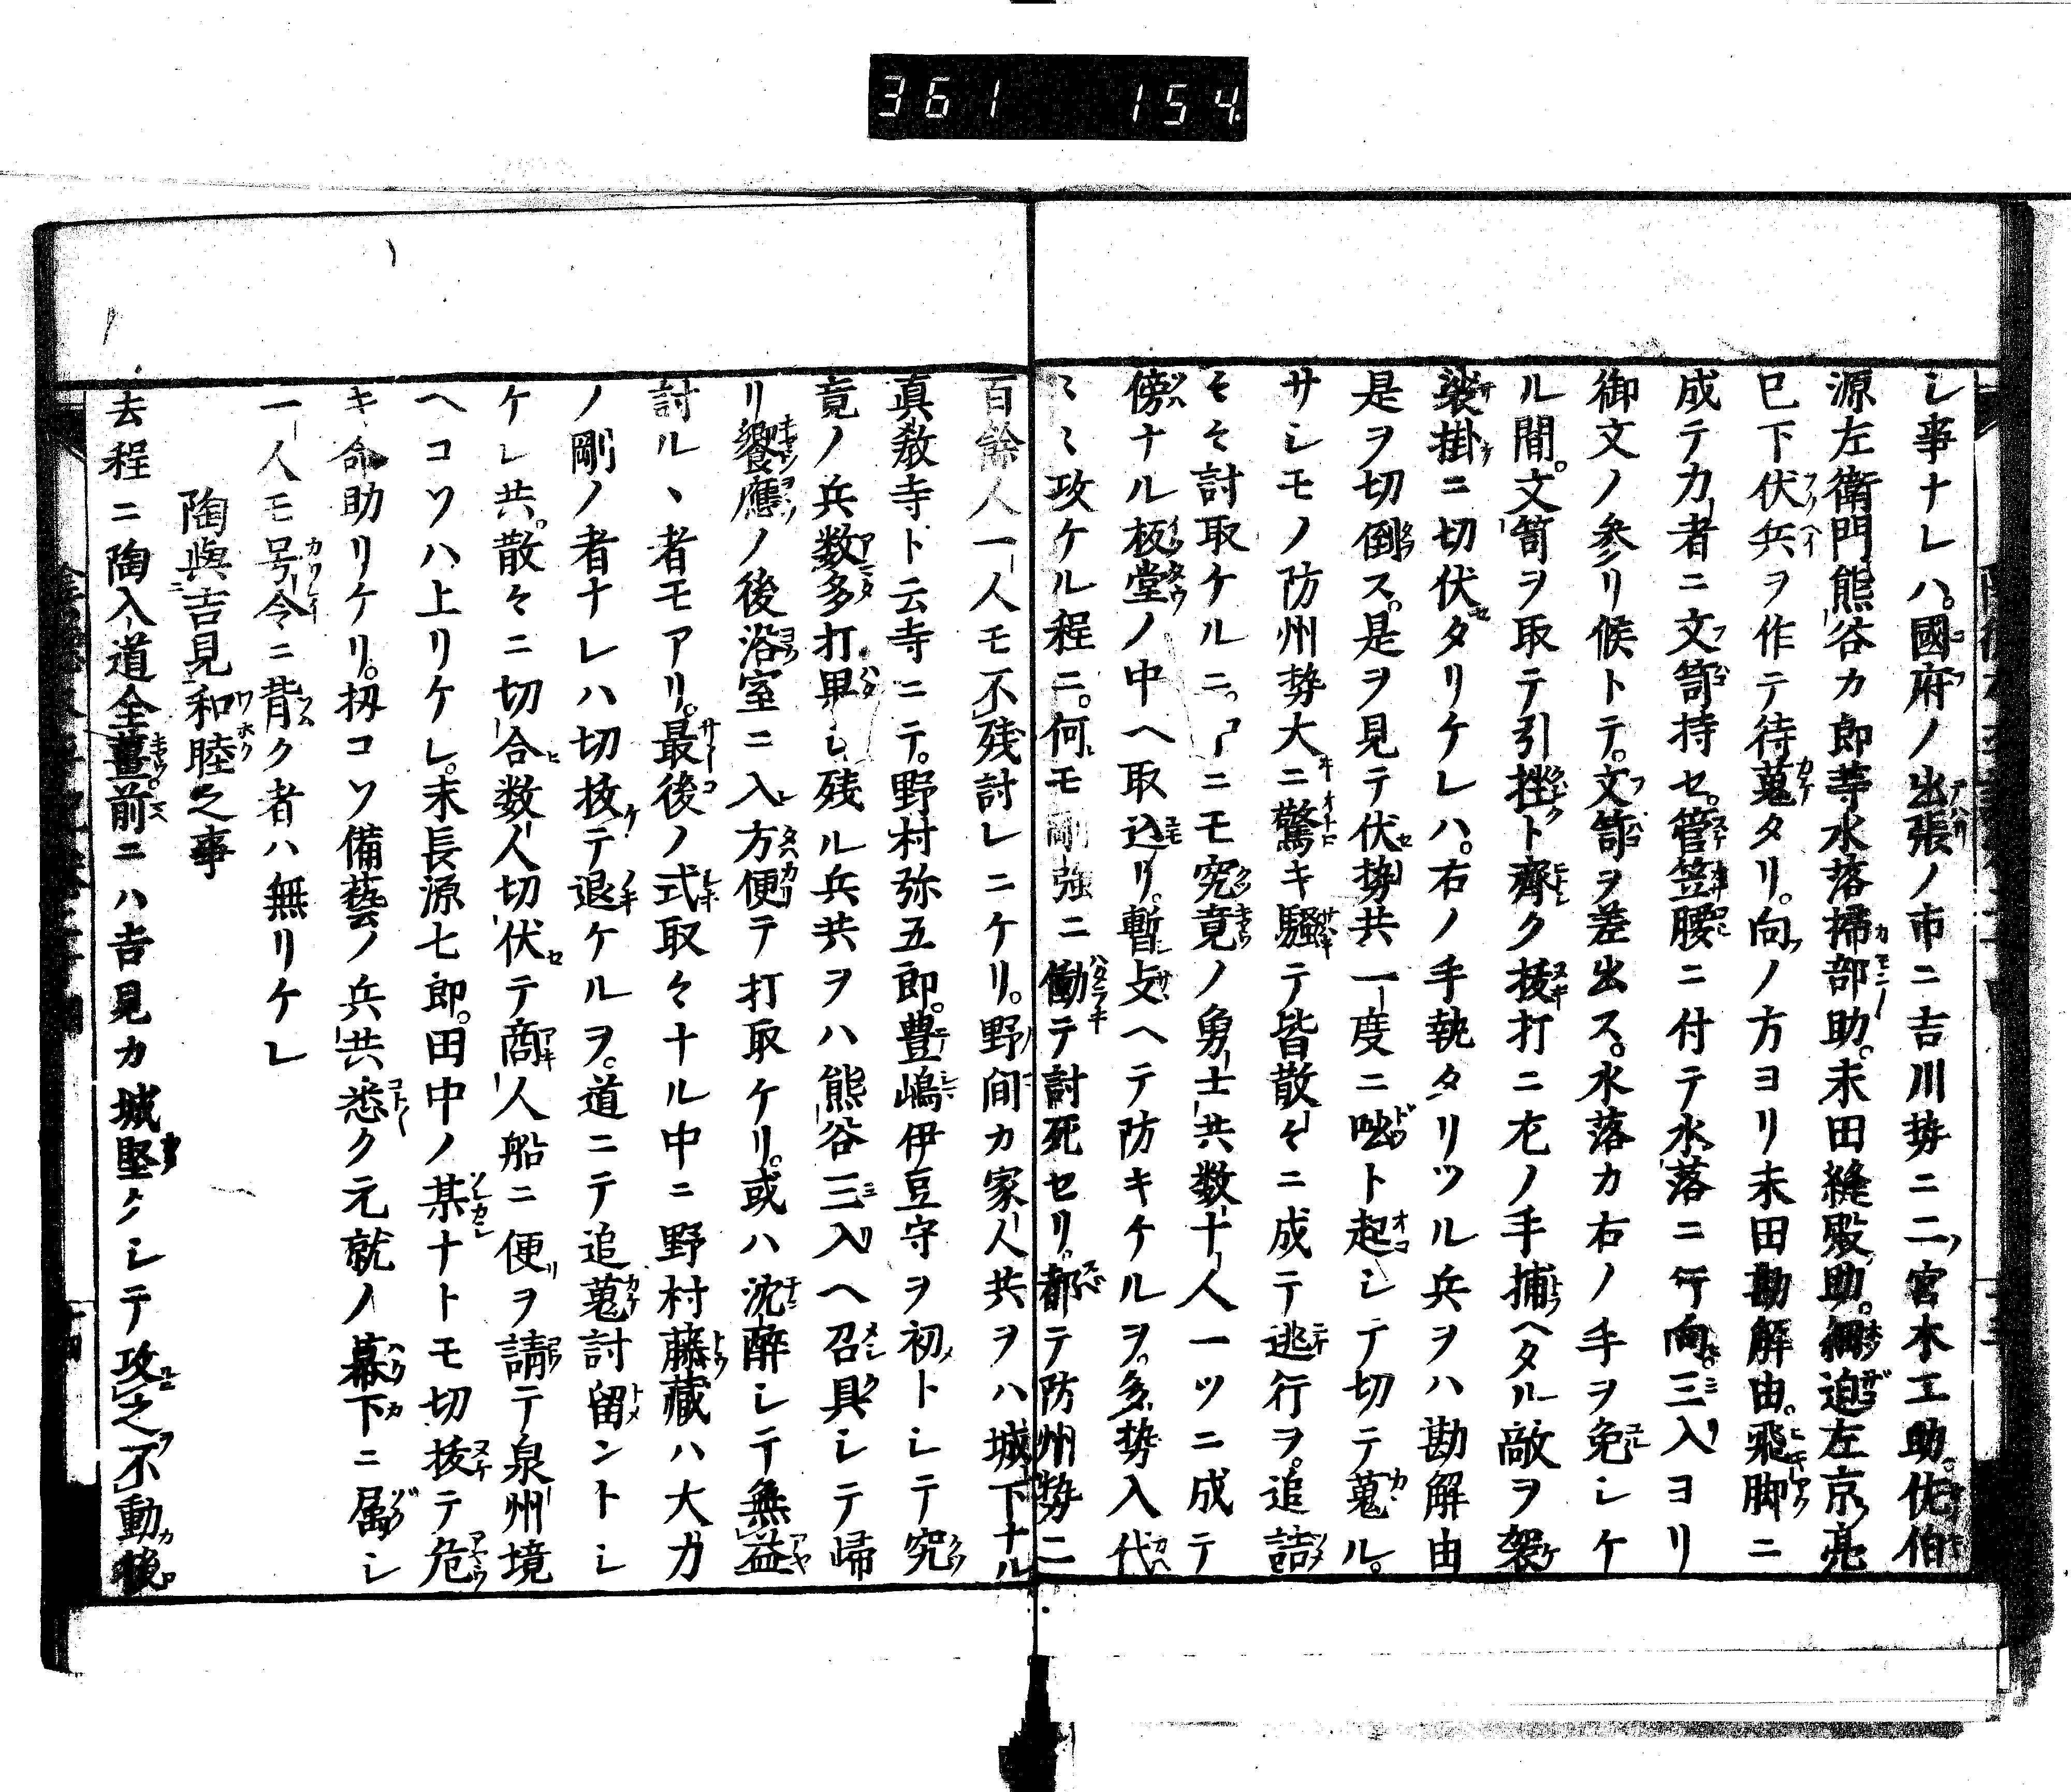 361 154
シ事ナレハ。國府ノ出張ノ市ニ吉川勢ニ二宮木工助。佐伯
源左衛門熊谷カ郎等水落掃部助。末田縫殿助。細迫左京亮
已下伏兵ヲ作テ待蒐タリ。向ノ方ヨリ末田勘解由。飛脚ニ
成テカ者ニ文笥持セ。管笠腰ニ付テ水落ニ行向。三入ヨリ
御文ノ参リ候トテ。文笥ヲ差出ス。水落カ右ノ手ヲ免シケ
ル間。文笥ヲ取テ引挫ト齊ク抜打ニ左ノ手捕ヘタル敵ヲ袈
裟掛ニ切伏タリケレハ。右ノ手執タリツル兵ヲハ勘解由
是ヲ切倒ス。是ヲ見テ伏勢共一度ニ咄ト起シテ切テ蒐ル。
サレモノ防州勢大ニ驚キ騒テ皆散々ニ成テ逃行ヲ。追詰
々々討取ケルニ。コヽニモ究竟ノ勇士共数十人一ツニ成テ
傍ナル板堂ノ中ヘ取込リ。暫支ヘテ防キケルヲ。多勢入代
ミミ攻ケル程ニ。何モ剛強ニ働テ討死セリ。都テ防州勢二
百餘人一人モ不残討レニケリ。野間カ家人共ヲハ城下ナル
真教寺ト云寺ニテ。野村弥五郎。豊嶋伊豆守ヲ初トシテ究
竟ノ兵数多打果シ。残ル兵共ヲハ熊谷三入ヘ召具シテ帰
リ饗應ノ後浴室ニ入方便テ打取ケリ。或ハ沈酔シテ無益
討ルヽ者モアリ。最後ノ式取々ナル中ニ野村藤蔵ハ大力
ノ剛ノ者ナレハ切抜テ退ケルヲ。道ニテ追蒐討留ントシ
ケレ共。散々ニ切合数人切伏テ商人船ニ便ヲ請テ泉州境
ヘコソハ上リケレ。末長源七郎。田中ノ某ナトモ切抜テ危
キ命助リケリ。扨コソ備藝ノ兵共悉ク元就ノ幕下ニ属シ
一人モ号令ニ背ク者ハ無リケレ
陶與吉見和睦之事
去程ニ陶入道全薑。前ニハ吉見カ城堅クシテ攻之不動後